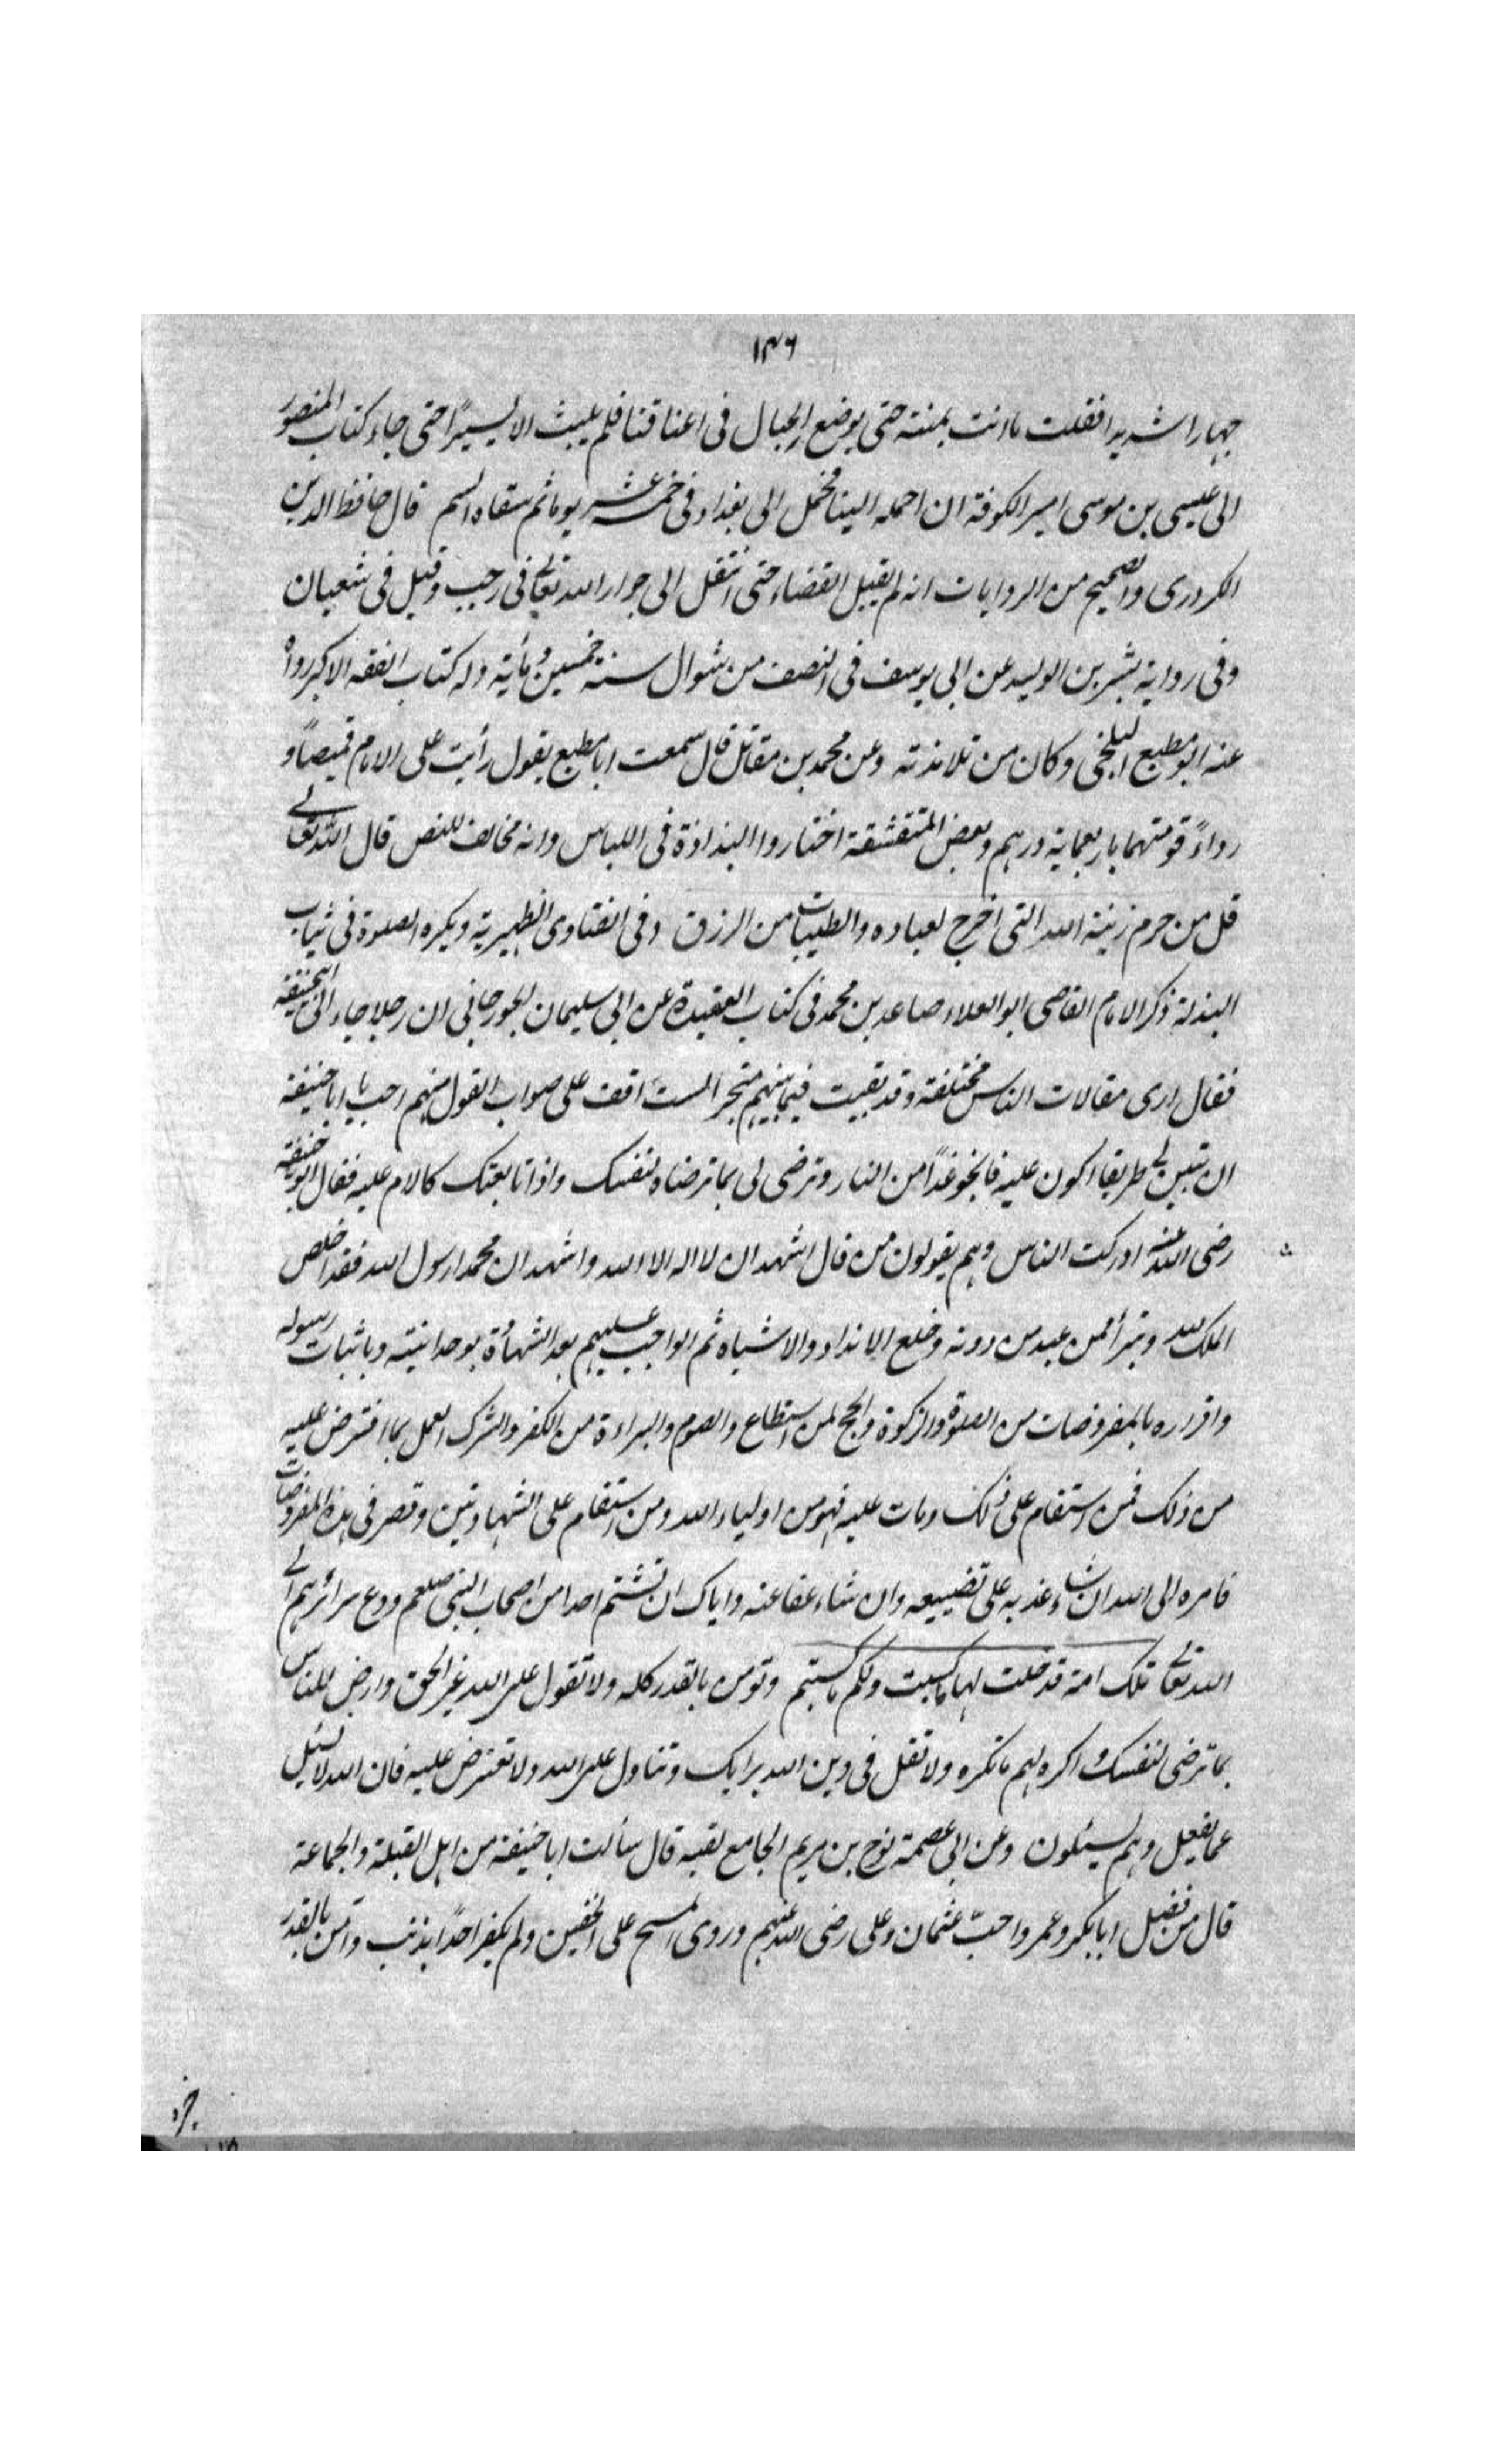 ١٣٦
جهارا شديدا فقلت ما انت بمنته حتى يوضع الحبال فى اعناقنا فلم يلبث الا يسيرًا حتى جاء كتاب المنصور
الى عيسى بن موسى امير الكوفة ان احمله الينا فحمل الى بغداد فى خمسة عشر يوما ثم سقاه السم قال حافظ الدين
الكردرى والصحيح من الروايات انه لم يقبل القضاء حتى انتقل الى جوار الله تعالى فى رجب وقيل فى شعبان
وفى رواية بشر بن الوليد عن ابى يوسف فى النصف من شوال سنة خمسين ومأية وله كتاب الفقه الاكبر رواه
عنه ابو مطيع البلخى وكان من تلامذته وعن محمد بن مقاتل قال سمعت ابا مطيع يقول رأيت على الامام قميصًا و
رداءً قومتهما باربعماية درهم وبعض المتقشفة اختاروا البذاذة فى اللباس وانه مخالف للنص قال الله تعالى
قل من حرم زينة الله التى اخرج لعباده والطيبات من الرزق وفى الفتاوى الظهيرية ويكره الصلوة فى ثياب
البذلة ذكر الامام القاضى ابو العلاء صاعد بن محمد فى كتاب العقيدة عن ابى سليمان الجورجانى ان رجلا جاء الى ابيحنيفة
فقال ارى مقالات الناس مختلفة وقد بقيت فيما بينهم متحير الست اقف على صواب القول منهم احب يا ابا حنيفة
ان تبين لى طريقا اكون عليه فانجو غدًا من النار وترضى لى بما ترضاه لنفسك واذا تابعتك كالام عليه فقال ابو حنيفة
رضى الله عنه ادركت الناس وهم يقولون من قال اشهد ان لا اله الا الله واشهد ان محمدا رسول الله فقد اخلص
الملك لله وتبرأ ممن عبد من دونه وخلع الانداد والاشباه ثم الواجب عليهم بعد الشهادة بوحدانيته وباثبات رسوله
واقراره بالمفروضات من الصلوة والزكوة والحج لمن استطاع والصوم والبراءة من الكفر والشرك العمل بما افترض عليه
من ذلك فمن استقام على ذلك ومات عليه فهو من اولياء الله ومن استقام على الشهادتين وقصر فى هذه المفروضات
فامره الى الله ان شاء عذبه على تضييعه وان شاء عفا عنه واياك ان تشتم احدا من اصحاب النبى صلعم ودع سرائرهم الى
الله تعالى تلك امة قد خلت لها ما كسبت ولكم ما كسبتم وتؤمن بالقدر كله ولا تقول على الله غير الحق وارض للناس
بما ترضى لنفسك واكره لهم ما تكره ولا تقل فى دين الله برايك وتتاول على الله ولا تعترض عليه فان الله لا يسئل
عما يفعل وهم يسئلون وعن ابى عصمة نوح بن مريم الجامع لقبه قال سألت ابا حنيفة من اهل القبلة والجماعة
قال من فضل ابا بكر وعمر واحبّ عثمان وعلى رضى الله عنهم وروى المسح على الخفين ولم يكفر احدًا بذنب وآمن بالقدر